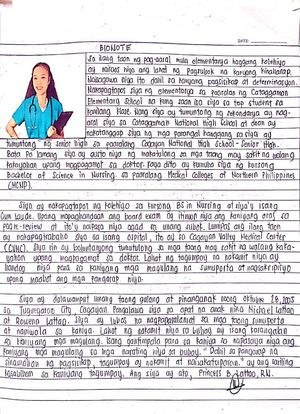 BIONOTE
Sa ilang taon ng pag-aaral mula elementarya hanggang kolehiyo
ay naraos niya ang lahat ng pagsubok na kanyang hinaharap.
Nakagawa niya ito dahil sa kanyang pagsisikap at determinasyon.
Nakapagtapos siya ng elementarya sa paaralan ng Cataggaman
Elementary School na kung saan isa siya sa top student sa
kanilang klase. Nang siya ay tumuntong ng sekondarya ay nag-
aral siya sa Cataggaman National High School at doon ay
nakatanggap siya ng mga parangal hanggang sa siya ay
tumuntong ng senior high sa paaralang Cagayan National High School - Senior High.
Bata pa lamang siya ay gusto niya ng makatulong sa mga taong may sakit na walang
kakayahan upang magpagamot sa doktor kaya dito ay kumuha siya ng kursong
Bachelor of Science in Nursing sa paaralang Medical Colleges of Northern Philippines
(MCNP).
Siya ay nakapagtapos ng kolehiyo sa kursong BS in Nursing at siya'y isang
Cum Laude. Upang mapaghandaan ang board exam ay itinuon niya ang kanyang oras sa
pagre-review at ito'y naipasa niya agad sa unang subok. Lumipas ang ilang taon
ay nakapagtrabaho siya sa isang ospital, ito ay sa Cagayan Valley Medical Center
(CVMC). Siya rin ay tumutulong sa mga taong may sakit na walang kaka-
yahan upang magpagamot sa doktor. Lahat na tagumpay na nakamit niya ay
handog niya para sa kaniyang mga magulang na sumuporta at nagsakripisyo
upang maabot ang mga pangarap niya.
Siya ay dalawampu't unang taong gulang at pinanganak noong Oktubre 2005
sa Tuguegarao City, Cagayan. Pangalawa siya sa apat na anak nina Michael Lattao
at Rowena Lattao. Siya ay lubos na nagpapasalamat sa mga taong sumuporta
at naniwala sa kaniya. Lahat ng nakamit niya sa buhay ay isang karangalan
sa kaniyang mga magulang. Isang
kaniyang mga magulang sa mga narating niya sa buhay. "Dahil sa pangarap na
sinamahan ng pagsisikap, tagumpay ay nakamit at nakakataba ng puso." ay ang
kasabihan sa kaniyang tagumpay. Ang siya ay ito, Princess B. Lattao, R.N.